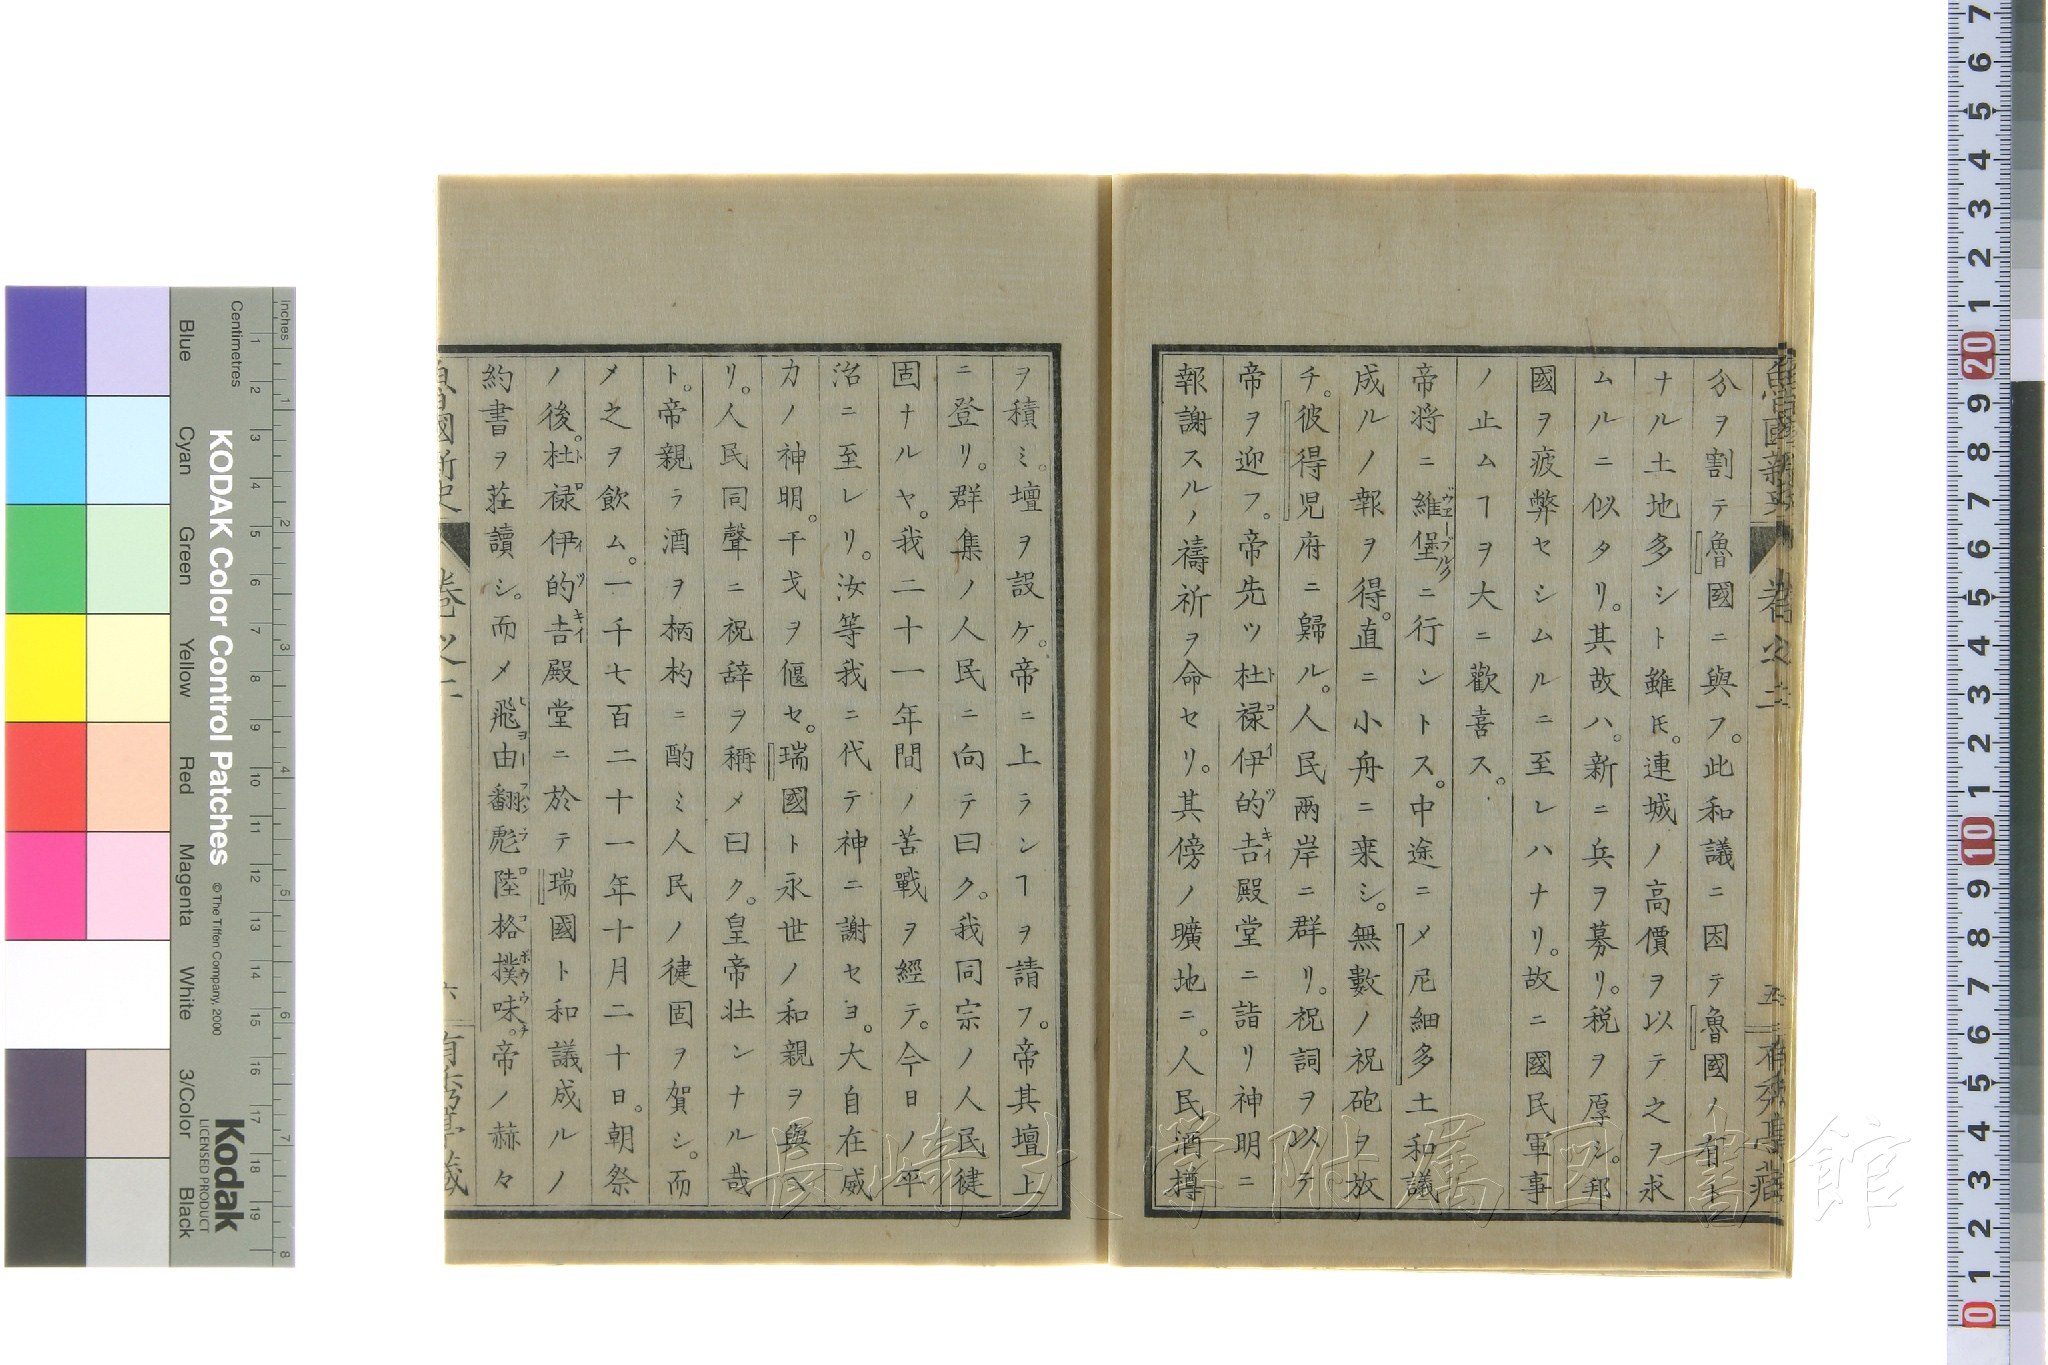 魯國新史 卷之二 五 有
分ヲ割テ魯國ニ與フ。此和議ニ因テ魯國ノ有ト
ナル土地多シト雖𪜈。連城ノ高價ヲ以テ之ヲ求
ムルニ似タリ。其故ハ。新ニ兵ヲ募リ。税ヲ厚シ。邦
國ヲ疲弊セシムルニ至レハナリ。故ニ國民軍事
ノ止ムヿヲ大ニ歡喜ス。
帝將ニ維堡ニ行ントス。中途ニメ尼細多土和議
成ルノ報ヲ得。直ニ小舟ニ乗シ。無數ノ祝砲ヲ放
チ。彼得児府ニ歸ル。人民兩岸ニ群リ。祝詞ヲ以テ
帝ヲ迎フ。帝先ツ杜禄伊的吉殿堂ニ詣リ神明ニ
報謝スルノ禱祈ヲ命セリ。其傍ノ曠地ニ。人民酒樽
ヲ積ミ。壇ヲ設ケ。帝ニ上ランヿヲ請フ。帝其壇上
ニ登リ。群集ノ人民ニ向テ曰ク。我同宗ノ人民健
固ナルヤ。我二十一年間ノ苦戰ヲ經テ。今日ノ平
治ニ至レリ。汝等我ニ代テ神ニ謝セヨ。大自在威
力ノ神明。干戈ヲ偃セ。瑞國ト永世ノ和親ヲ與ヘ
リ。人民同聲ニ祝辞ヲ稱メ曰ク。皇帝壮ンナル哉
ト。帝親ラ酒ヲ柄杓ニ酌ミ人民ノ健固ヲ賀シ。而
メ之ヲ飲ム。一千七百二十一年十月二十日。朝祭
ノ後。杜禄伊的吉殿堂ニ於テ瑞國ト和議成ルノ
約書ヲ荘讀シ。而メ飛由翻彪陸格撲味。帝ノ赫々
魯國新史 卷之二 六
長崎大学附属図書館
KODAK Color Control Patches
© The Tiffen Company, 2000
Kodak
LICENSED PRODUCT
Inches
Centimetres
Blue
Cyan
Green
Yellow
Red
Magenta
White
3/Color
Black